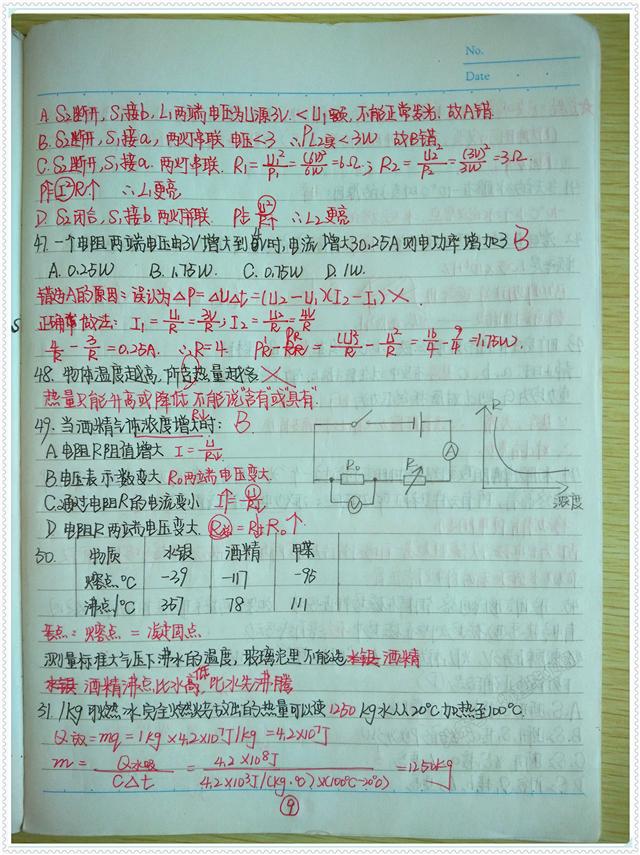 No.
Date
A. S₂断开, S₁接b, L₁两端电压为U源3V < U₁额, 不能正常发光. 故A错
B. S₂断开, S₁接a, 两灯串联 电压<3 ∴PL₂实<3W 故B错
C. S₂断开, S₁接a. 两灯串联. R₁=U₁²/P₁=(6V)²/6W=6Ω; R₂=U₂²/P₂=(3V)²/3W=3Ω.
P=I²R↑ ∴L₁更亮
D. S₂闭合, S₁接b. 两灯并联. P=U²/R↑ ∴L₂更亮
47. 一个电阻两端电压由3V增大到4V时, 电流增大30.25A 则电功率增加3 B
A. 0.25W B. 1.75W. C. 0.75W D. 1W.
错为A的原因: 误认为△P=△U△I=(U₂-U₁)(I₂-I₁) ×
正确做法: I₁=U₁/R=3V/R; I₂=U₂/R=4V/R
4/R-3/R=0.25A. ∴R=4.
48. 物体温度越高, 所含热量越多 ×
热量只能升高或降低 不能说"含有"或"具有"
49. 当酒精气体浓度增大时: B.
R↓
A 电阻R阻值增大 I=U/R↓
B 电压表示数变大 R₀两端电压变大
C 通过电阻R的电流变小 I↑=U/R↓
D 电阻R两端电压变大.
R₀
R
A
V
R
浓度
50. 物质 水银 酒精 甲苯
熔点/℃ -39 -117 -95
沸点/℃ 357 78 111
考点: 熔点 = 凝固点
测量标准大气压下沸水的温度, 玻璃泡里不能选 水银 酒精
水银 酒精沸点比水高 低 比水先沸腾
31. 1kg可燃冰完全燃烧放出的热量可以使1250kg水从20℃加热至100℃.
m=Q水吸/C△t=4.2×10⁸J/4.2×10³J/(kg·℃)×(100℃-20℃)=1250kg
9